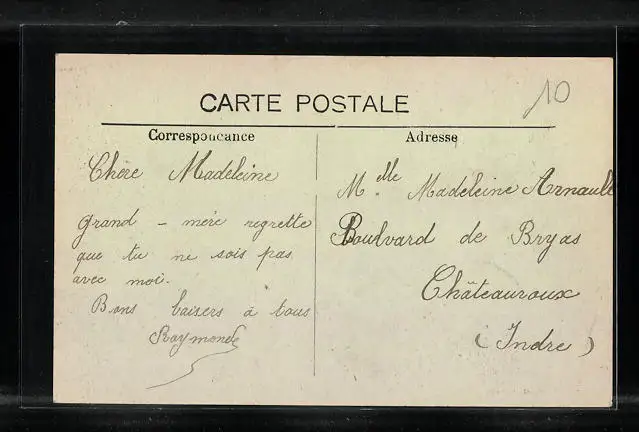 10
CARTE POSTALE
Correspondance
Adresse
Chère Madeleine
grand - mère regrette
que tu ne sois pas
avec moi.
Bons baisers à tous
Raymonde
Melle Madeleine Arnault
Boulvard de Bryas
Châteauroux
(Indre)